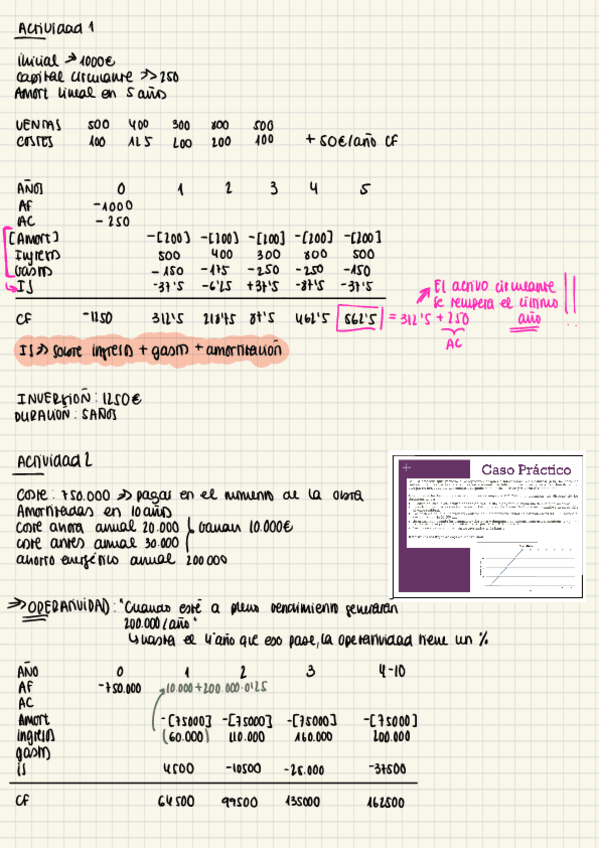 Actividad 1
inicial → 1000€
capital circulante → 250
Amort lineal en 5 años
VENTAS 500 400 300 800 500
COSTES 100 125 200 200 100 + 50€/año CF
AÑOS 0 1 2 3 4 5
AF -1000
AC -250
[Amort] -[200] -[200] -[200] -[200] -[200]
Ingresos 500 400 300 800 500
Gastos -150 -175 -250 -250 -150
IS -37'5 -6'25 +37'5 -87'5 -37'5
El activo circulante se recupera el último año !!
CF -1250 312'5 218'75 87'5 462'5 562'5 = 312'5 + 250
AC
IS → sobre ingresos + gastos + amortización
INVERSIÓN: 1250€
DURACIÓN: 5 AÑOS
Actividad 2
Caso Práctico
coste: 750.000 → pagar en el momento de la obra
Amortizadas en 10 años
coste ahora anual 20.000 ganan 10.000€
coste antes anual 30.000
ahorro energético anual 200000
⇒ OPERATIVIDAD: "Cuando esté a pleno rendimiento generarán
200.000/año"
↳ hasta el 4º año que eso pase, la operatividad tiene un %
AÑO 0 1 2 3 4-10
AF -750.000 10.000+200.000·0'25
AC
Amort -[75000] -[75000] -[75000] -[75000]
ingresos (60.000) 110.000 160.000 200.000
gastos
is 4500 -10500 -25.000 -37500
CF 64500 99500 135000 162500